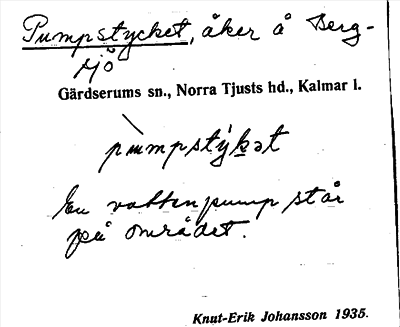 Pumpstycket, åker å Berg-
sjö
Gärdserums sn., Norra Tjusts hd., Kalmar l.
pùmpstýk̲ət
En vattenpump står
på området.
Knut-Erik Johansson 1935.